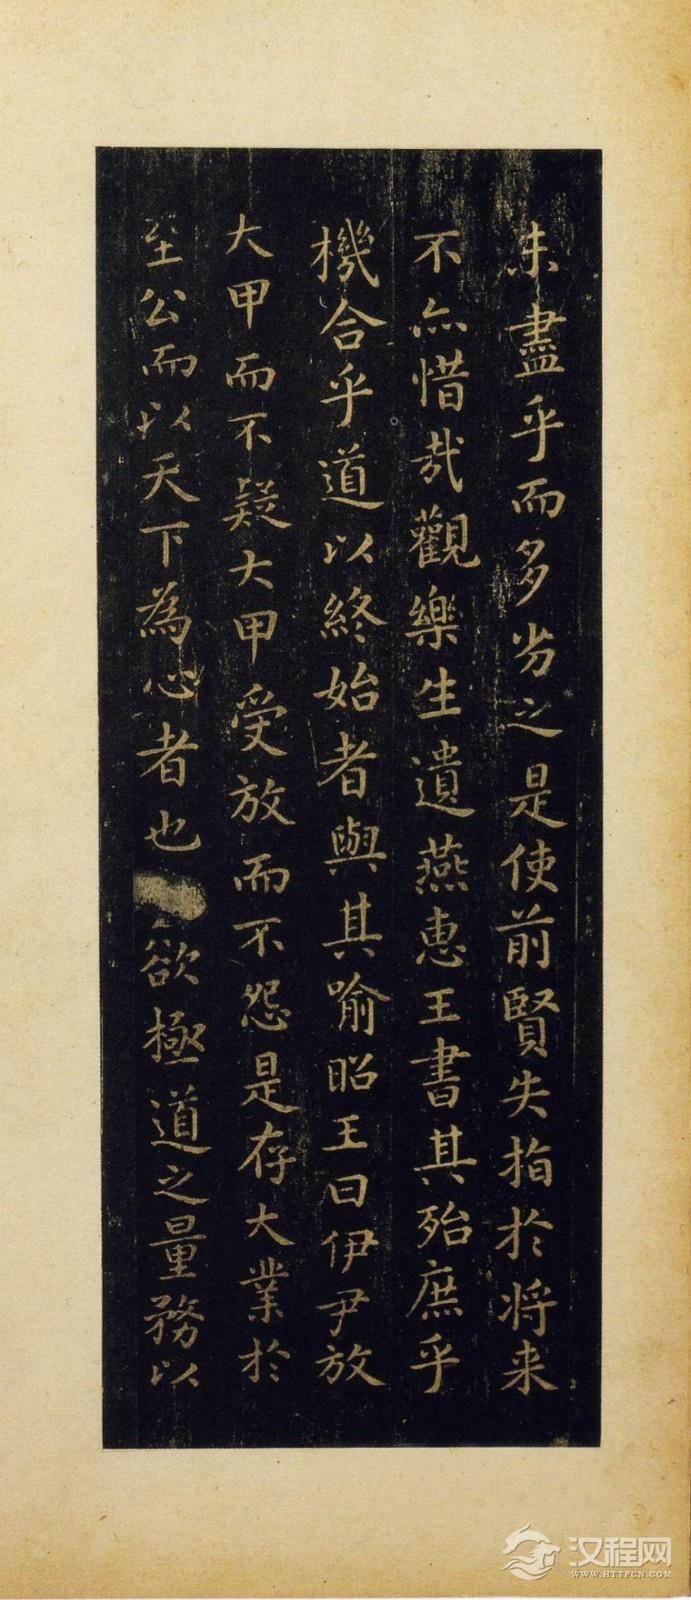 未盡乎而多劣之是使前賢失指於将来
不亦惜哉觀樂生遺燕惠王書其殆庶乎
機合乎道以終始者與其喻昭王曰伊尹放
大甲而不疑大甲受放而不怨是存大業於
至公而以天下為心者也欲極道之量務以
汉程网
WWW.HTTPCN.COM